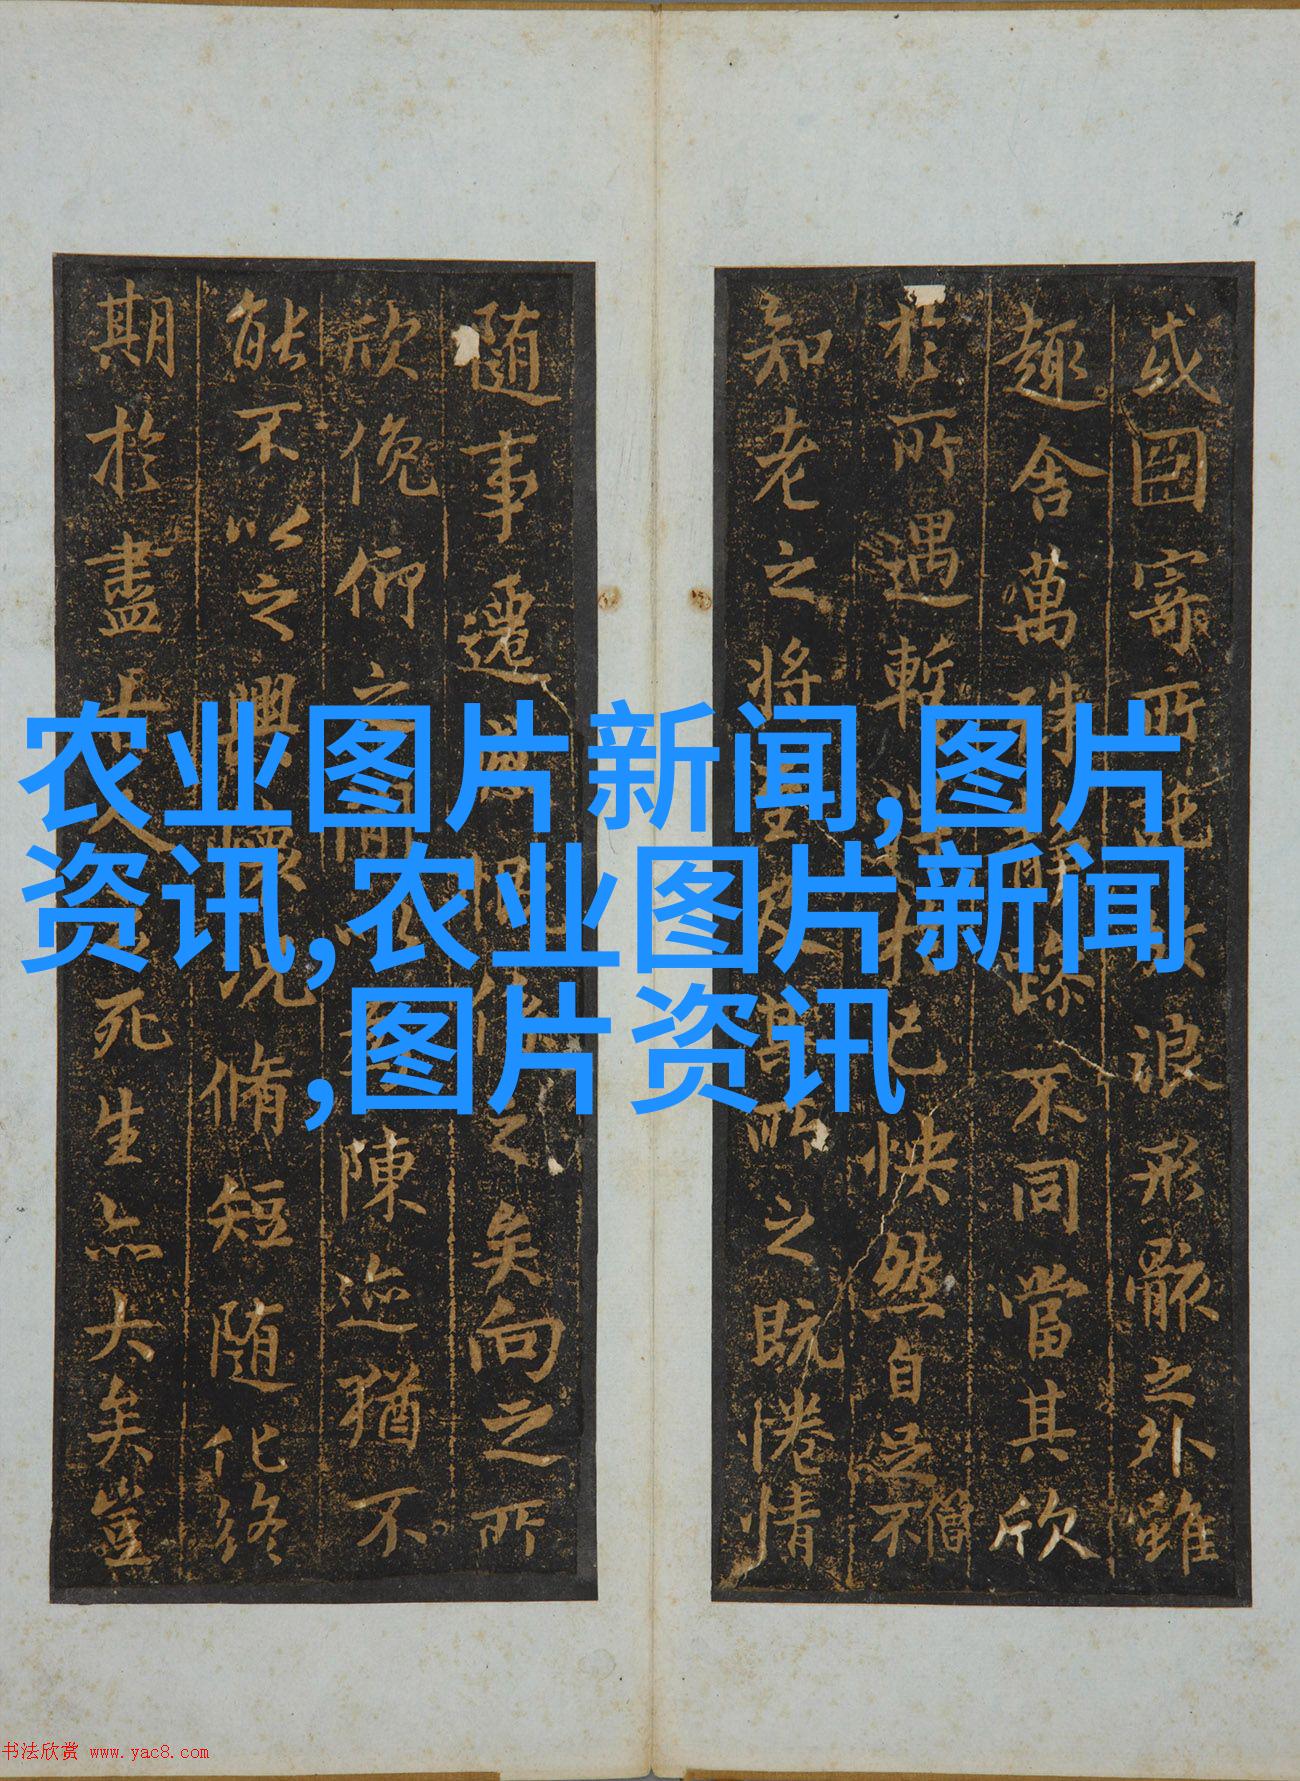 或因寄所託放浪形骸之外雖
趣舍萬殊靜躁不同當其欣
於所遇暫得於己怏然自足不僧
知老之將至及其所之既惓情
隨事遷感慨係之矣向之所
欣俛仰之間以為陳迹猶不
能不以之興懷況脩短隨化終
期於盡古人云死生亦大矣豈
农业图片新闻,图片
资讯,农业图片新闻
,图片资讯
书法欣赏 www.yac8.com